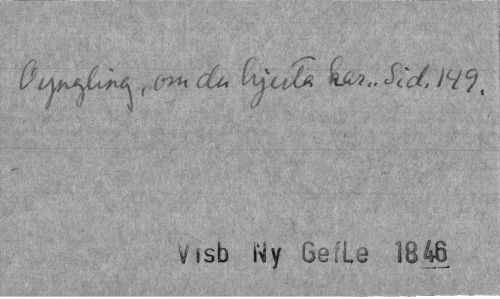 O yngling, om du hjerta har.. Sid. 149.
Visb Ny GefLe 1846